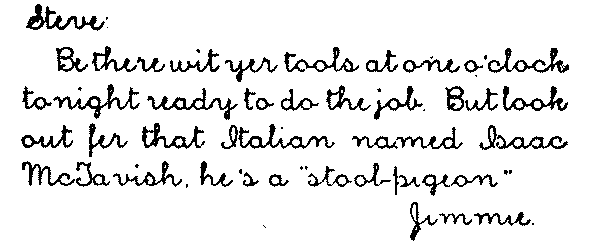 Steve:
Be there wit yer tools at one o'clock
tonight ready to do the job. But look
out fer that Italian named Isaac
McTavish, he's a "stool-pigeon"
Jimmie.